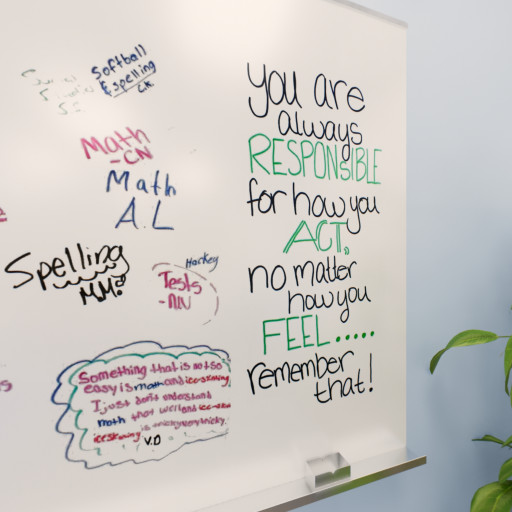 Softball
& spelling
CK
Math
-CN
Math
A.L
Spelling
MM!
Hockey
Tests
-NN
Something that is not so
easy is math and ice-skating
I just don't understand
math
ice skating
V.D
you are
always
RESPONSIBLE
for how you
ACT,
no matter
how you
FEEL.....
remember
that!